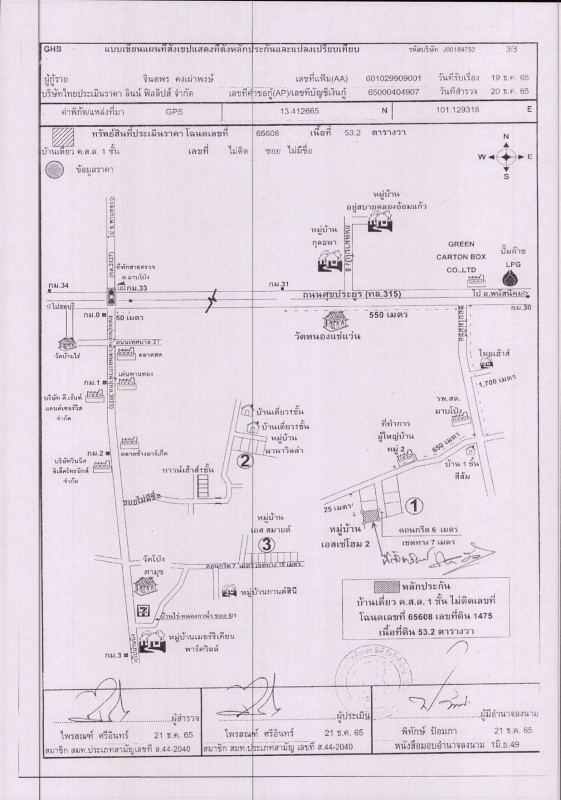 GHB แบบเขียนแผนที่สังเขปแสดงที่ตั้งหลักประกันและแปลงเปรียบเทียบ รหัสบริษัท J00189752 3/8
ผู้กู้ราย จินตพร คงเผ่าพงษ์ เลขที่แฟ้ม(AA) 601029909001 วันที่รับเรื่อง 19 ธ.ค. 65
บริษัทไทยประเมินราคา ลินน์ ฟิลลิปส์ จำกัด เลขที่คำขอกู้(AP)/เลขที่บัญชีเงินกู้ 65000404907 วันที่สำรวจ 20 ธ.ค. 65
ค่าพิกัด/แหล่งที่มา GPS 13.412665 N 101.129318 E
ทรัพย์สินที่ประเมินราคา โฉนดเลขที่ 65608 เนื้อที่ 53.2 ตารางวา
บ้านเดี่ยว ค.ส.ล. 1 ชั้น เลขที่ ไม่ติด ซอย ไม่มีชื่อ
ข้อมูลราคา
N
W E
S
หมู่บ้าน
อยู่สบายคลองอ้อมแก้ว
หมู่บ้าน
กุลธหา
GREEN
CARTON BOX
CO.,LTD
ปั๊มก๊าซ
LPG
ที่พักสายตรวจ
ต.มาบโป่ง
กม.34
กม.33
กม.31
ถนนศุขประยูร (ทล.315)
ไป อ.พนัสนิคม
กม.30
ไปชลบุรี
กม.0
50 เมตร
550 เมตร
วัดหนองแช่แว่น
ถนนเทศบาล 21
ตลาดสด
วัดบ้านไร่
ไทยเฮ้าส์
กม.1
เด่นพานทอง
1,700 เมตร
แอนด์เซอร์วิส
จำกัด
บ้านเดี่ยว1ชั้น
บ้านเดี่ยว1ชั้น
หมู่บ้าน
นานาวิลล่า
รพ.สต.
มาบโป่ง
ที่ทำการ
ผู้ใหญ่บ้าน
หมู่ 2
650 เมตร
กม.2
ทาวน์เฮ้าส์1ชั้น
2
บ้าน 1 ชั้น
สีส้ม
จำกัด
ซอยไม่มีชื่อ
25 เมตร
1
หมู่บ้าน
เอส สมายด์
3
หมู่บ้าน
เอสเซ่โฮม 2
คอนกรีต 6 เมตร
เขตทาง 7 เมตร
คอนกรีต 7 เมตร เขตทาง 15 เมตร
วัดโป่ง
ตามุข
หมู่บ้านกานต์สินี
หลักประกัน
บ้านเดี่ยว ค.ส.ล. 1 ชั้น ไม่ติดเลขที่
โฉนดเลขที่ 65608 เลขที่ดิน 1475
เนื้อที่ดิน 53.2 ตารางวา
7
กม.3
หมู่บ้านเมอร์ริเคียน
พาร์ควิลล์
ผู้สำรวจ ผู้ประเมิน ผู้มีอำนาจลงนาม
ไพรสณฑ์ ศรีอินทร์ 21 ธ.ค. 65 ไพรสณฑ์ ศรีอินทร์ 21 ธ.ค. 65 พิทักษ์ ป้อมภา 21 ธ.ค. 65
สมาชิก สมท.ประเภทสามัญ เลขที่ ส.44-2040 สมาชิก สมท.ประเภทสามัญ เลขที่ ส.44-2040 หนังสือมอบอำนาจลงนาม 1มิ.ย.49